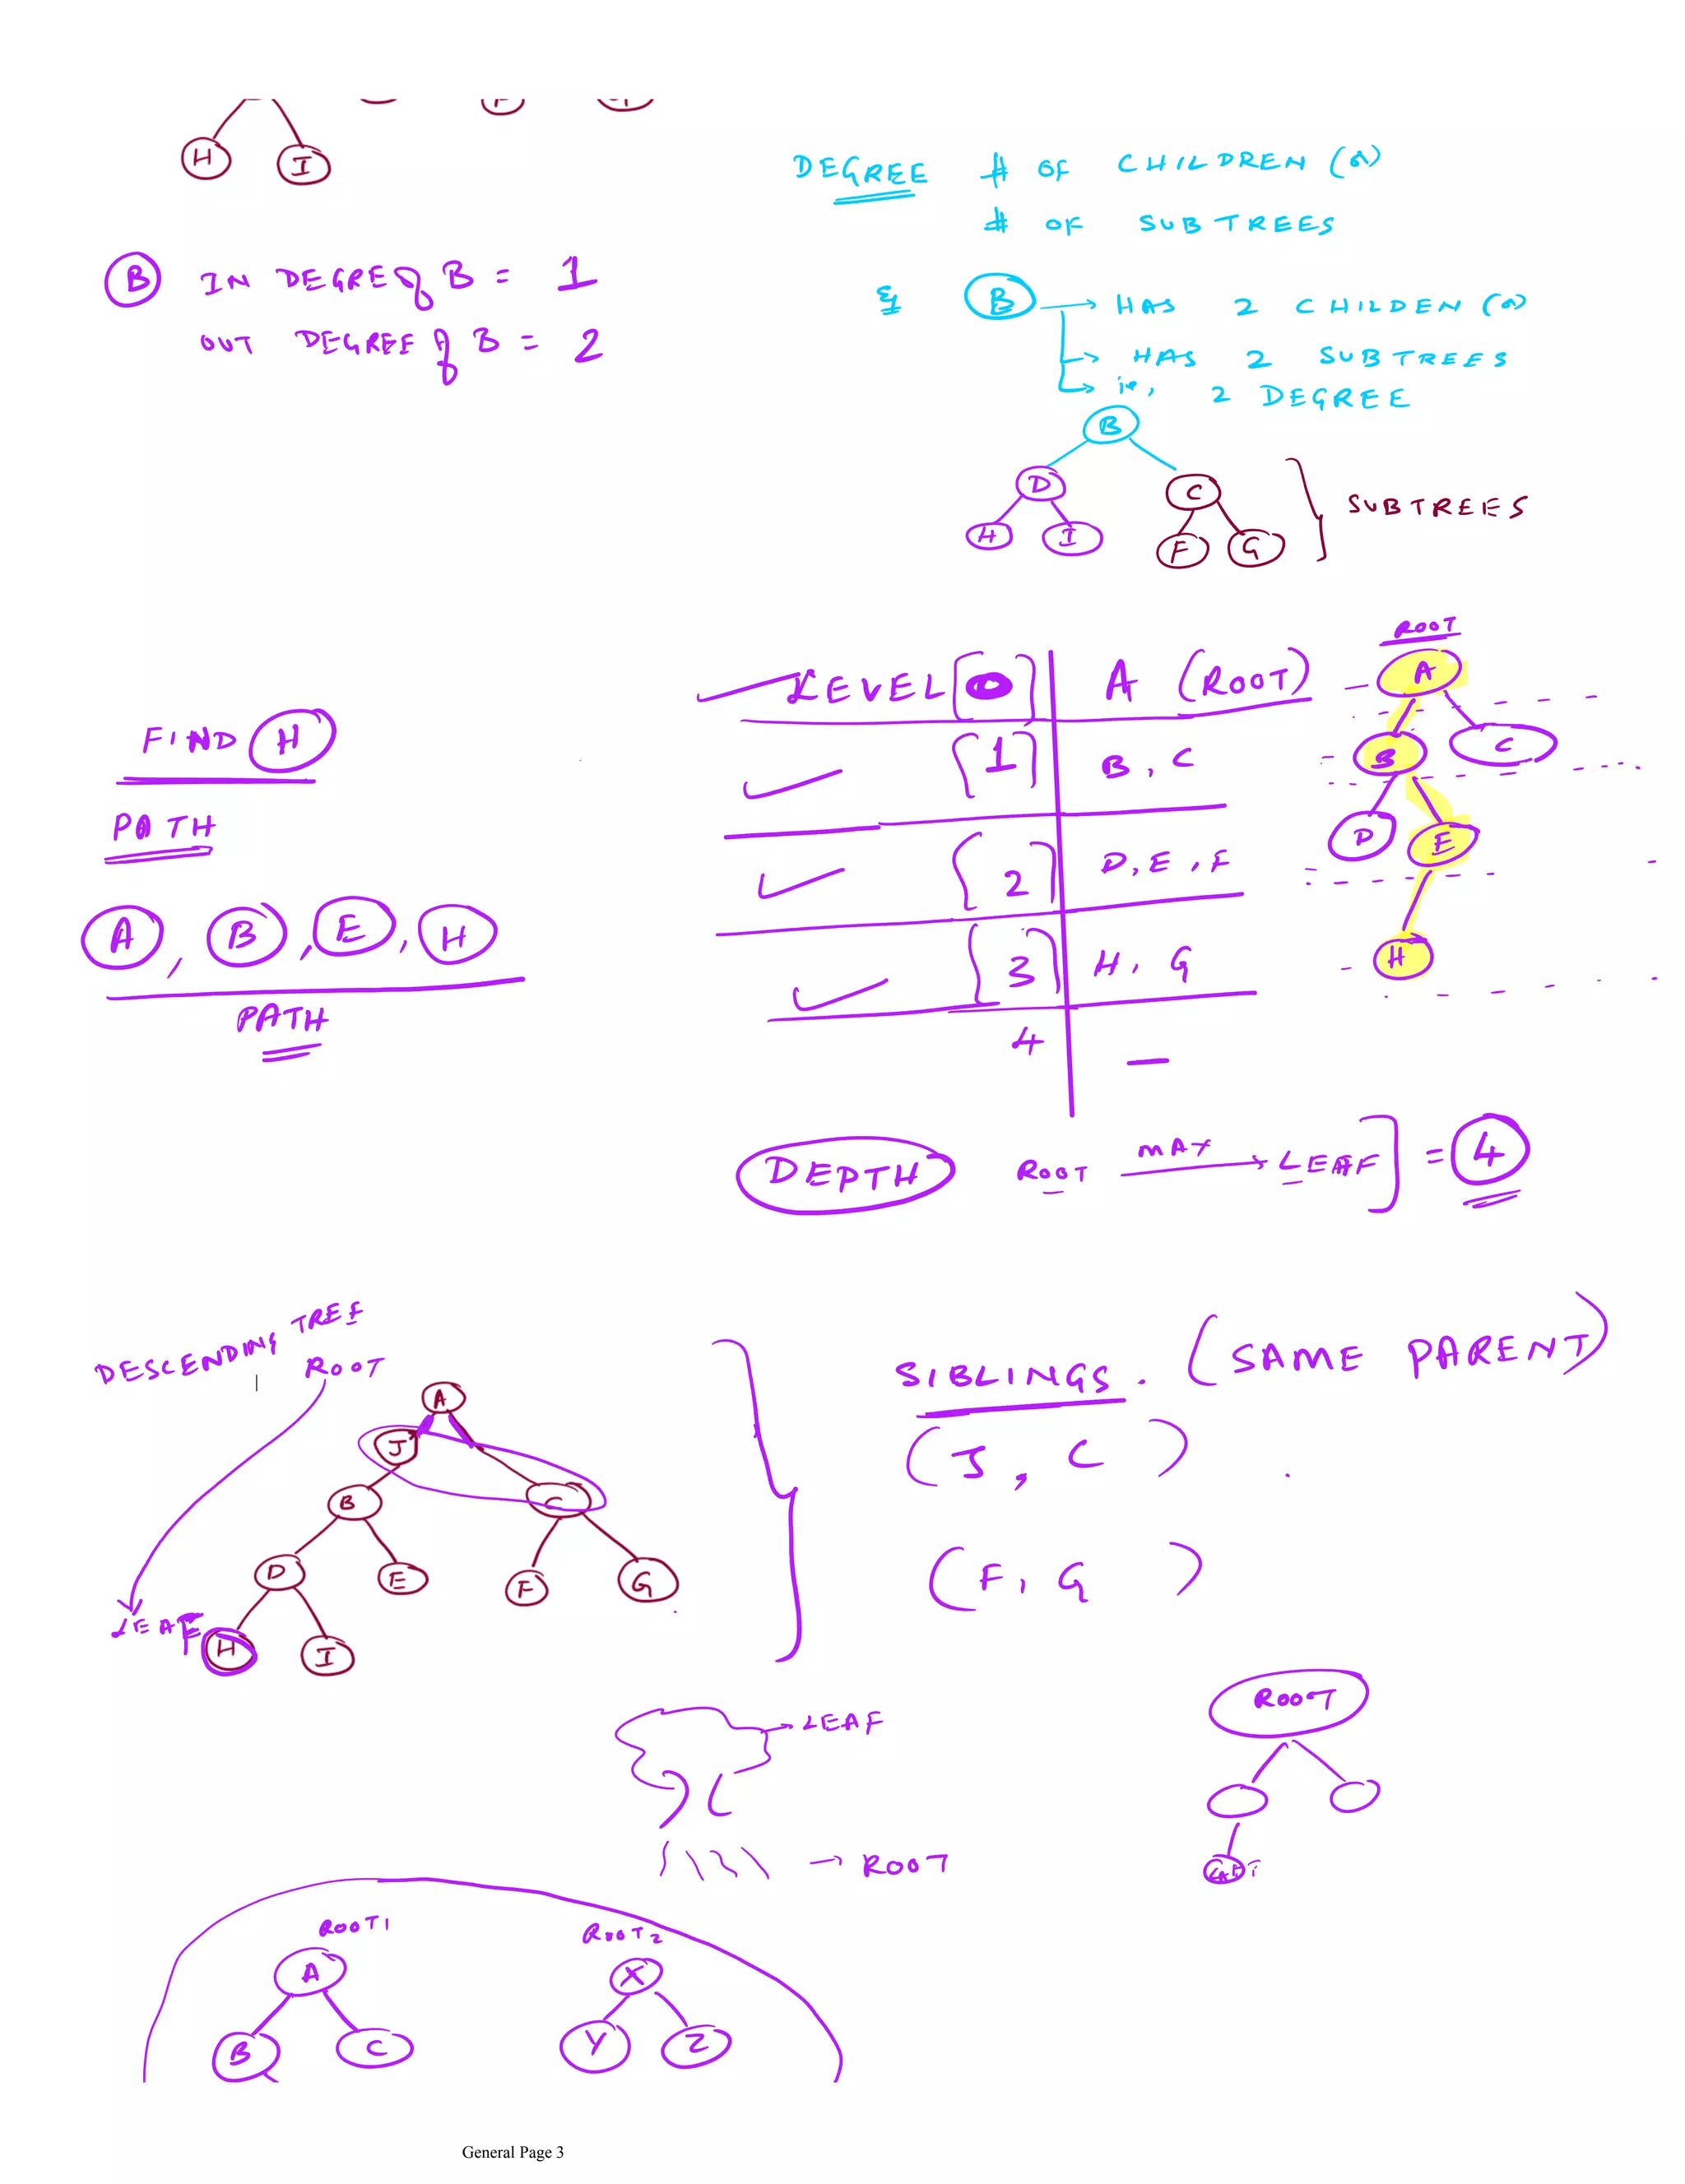 H I
DEGREE # OF CHILDREN (or)
# OF SUBTREES
B IN DEGRE of B = 1
OUT DEGREE of B = 2
Eg B → HAS 2 CHILDEN (or)
→ HAS 2 SUBTREES
→ ie, 2 DEGREE
B
D C
H I F G
SUBTREES
ROOT
LEVEL [0] A (ROOT)
A
FIND H
[1] B, C
B C
PATH
[2] D, E, F
D E
A, B, E, H
[3] H, G
H
PATH
4 —
DEPTH ROOT MAX → LEAF] = 4
DESCENDING TREE
ROOT
SIBLINGS. (SAME PARENT)
A
J
(J, C)
B C
D E F G
(F, G)
LEAF
H I
ROOT
→ LEAF
→ ROOT
ROOT1 ROOT2
A X
B C Y Z
General Page 3